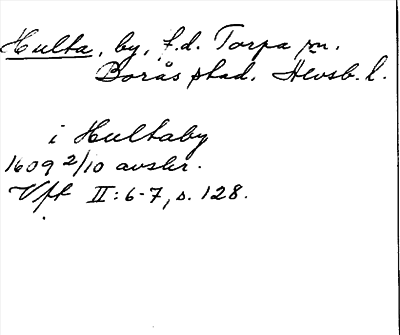 Hulta, by, f.d. Torpa sn.
Borås stad, Älvsb. l.
i Hultaby
1609 2/10 avskr.
Vft II: 6-7, s. 128.